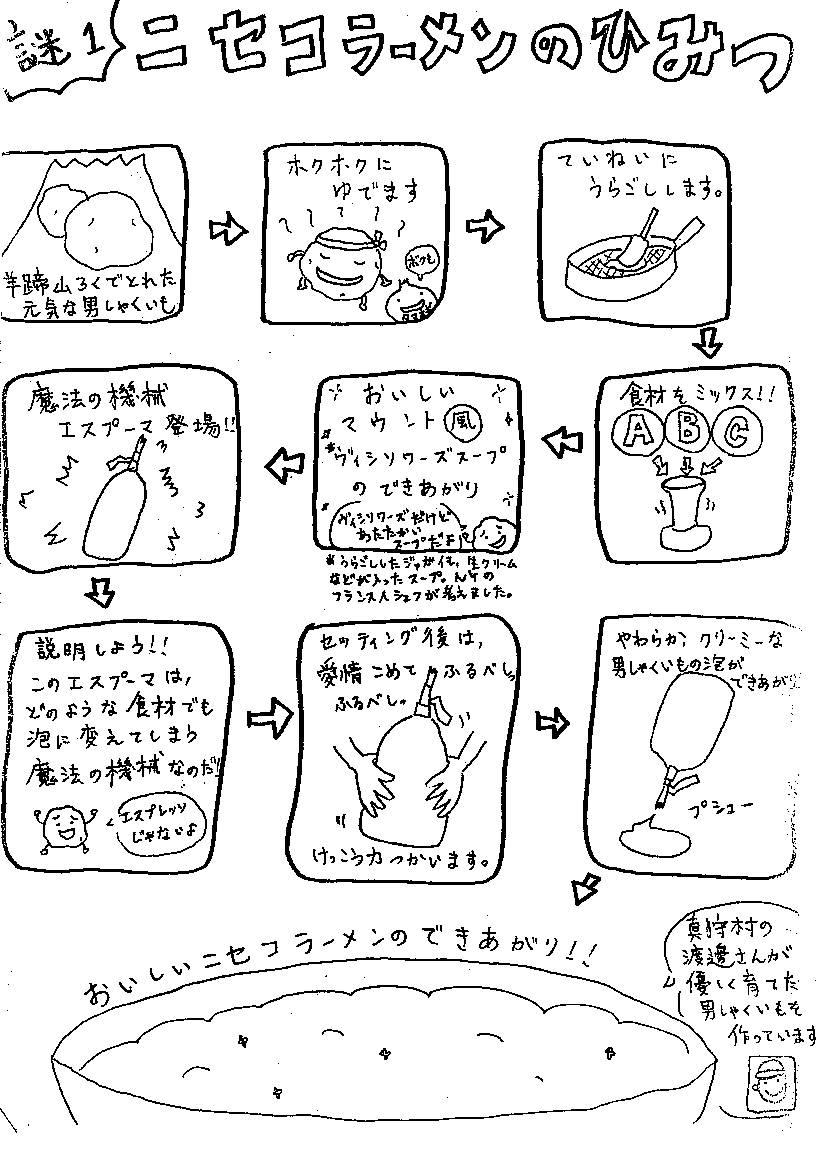 謎1
ニセコラーメンのひみつ
羊蹄山ろくでとれた
元気な男しゃくいも
ホクホクに
ゆでます
ボクも
ていねいに
うらごしします。
食材をミックス!!
A B C
おいしい
マウント風
*ヴィシソワーズスープ
のできあがり
ヴィシソワーズだけど
あたたかい
スープだよ
*うらごししたジャガイモ、生クリーム
などが入ったスープ。NYの
フランス人シェフが考えました。
魔法の機械
エスプーマ登場!!
説明しよう!!
このエスプーマは、
どのような食材でも
泡に変えてしまう
魔法の機械なのだ!!
エスプレッソ
じゃないよ
セッティング後は、
愛情こめてふるべし。
ふるべし。
けっこう力つかいます。
やわらかクリーミーな
男しゃくいもの泡が
できあがり
プシュー
おいしいニセコラーメンのできあがり!!
真狩村の
渡邊さんが
優しく育てた
男しゃくいもを
作っています